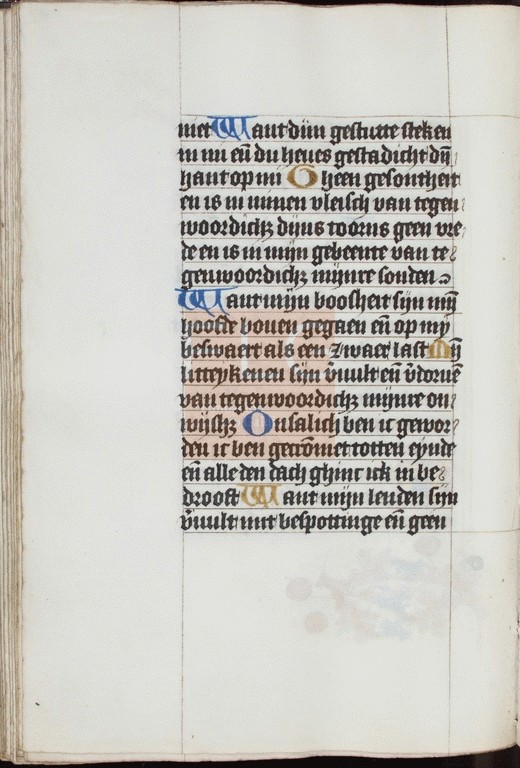 niet Want dijn gescutte steken
in mi en̄ du heues gestadicht dijn̄
hant op mi Gheen gesontheit
en is in minen vleisch van tegen
woordichz dijns toorns geen vre
de en is in mijn gebeente van te
genwoordichz mijnre sonden
Want mijn boosheit sijn mijn̄
hoofde bouen gegaen en̄ op mij
beswaert als een zwaer last Mij
litteykenen sijn v̄uult en̄ v̄doruē
van tegenwoordichz mijnre on
wijshz Onsalich ben ic gewor
den ic ben gecrōmet totten eynde
en̄ alle den dach ghinc ick in be
drooft Want mijn lenden sijn
v̄uult mit bespottinge en̄ geen